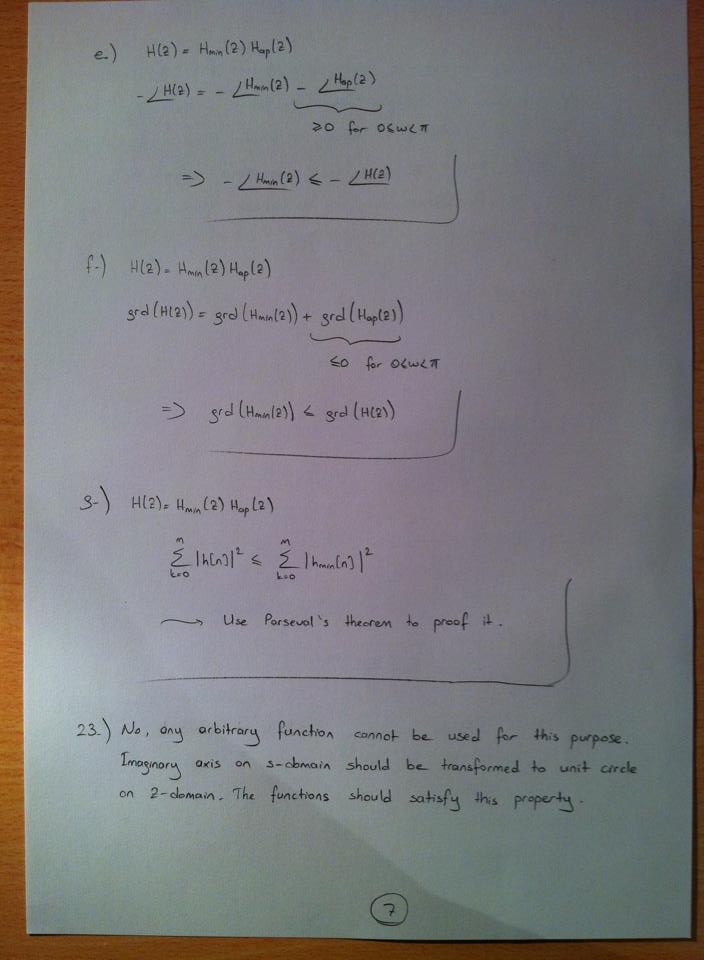 e.) H(z) = Hmin(z) Hap(z)
-∠H(z) = - ∠Hmin(z) - ∠Hap(z)
≥0 for 0≤ω<π
=> - ∠Hmin(z) ≤ - ∠H(z)
f.) H(z) = Hmin(z) Hap(z)
grd(H(z)) = grd(Hmin(z)) + grd(Hap(z))
≤0 for 0≤ω<π
=> grd(Hmin(z)) ≤ grd(H(z))
g-) H(z) = Hmin(z) Hap(z)
∑_{k=0}^{m} |h[n]|² ≤ ∑_{k=0}^{M} |hmin[n]|²
→ Use Parseval's theorem to proof it.
23.) No, any arbitrary function cannot be used for this purpose.
Imaginary axis on s-domain should be transformed to unit circle
on z-domain. The functions should satisfy this property.
7